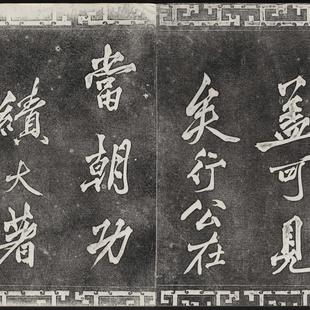 蓋可見
矣行公在
當朝功
績大著